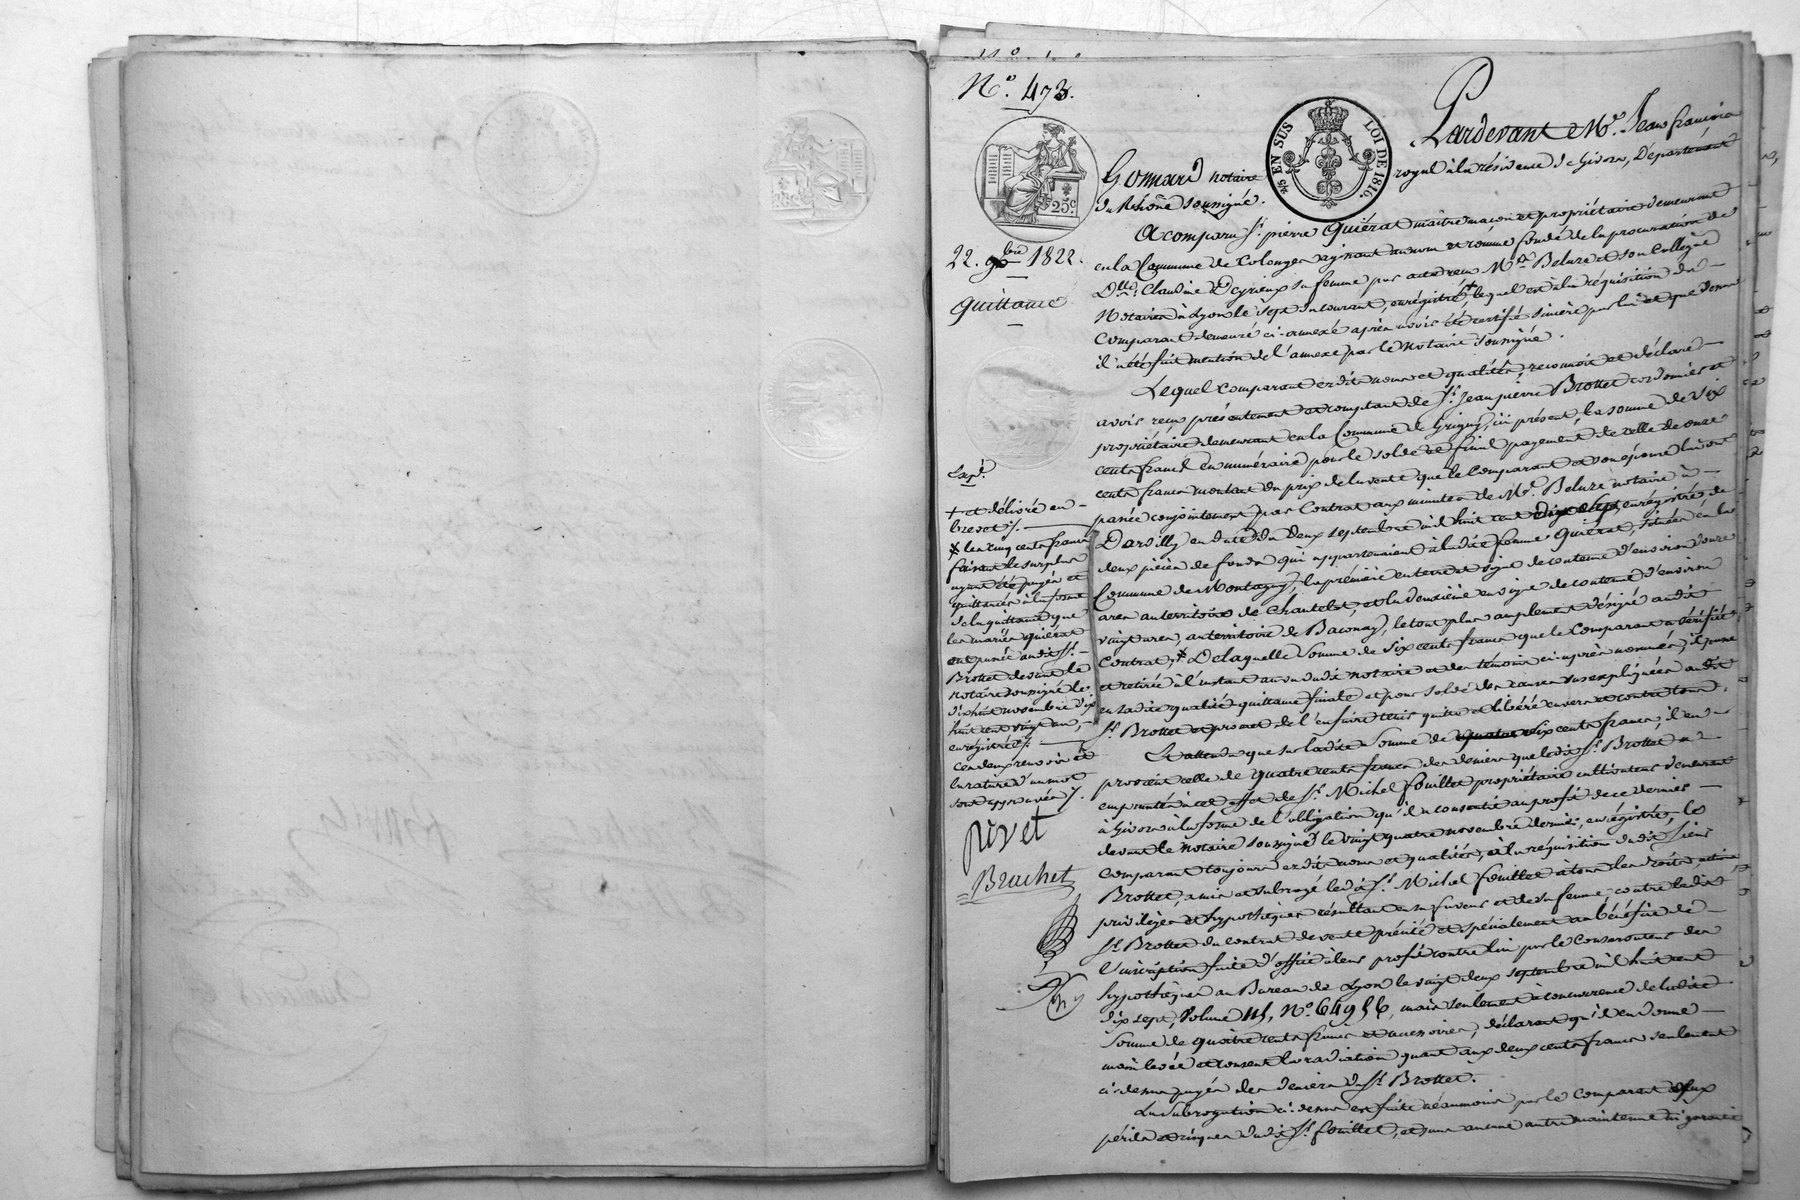 N.° 473.
5/5 EN SUS LOI DE 1816.
25c
Pardevant Me. Jean françois
Gonnard notaire royal à la résidence de Givors, Département
du Rhône soussigné.
22. 9bre 1822.
Quittance
A comparu Sr. pierre Quiérat maître maçon et propriétaire demeurant
en la Commune de Colonges agissant au nom et comme fondé de la procuration de
Dlle. Claudine Decyrieux sa femme par acte reçu Me. Beluze et son Collègue
Notaires à Lyon le sept du courant, enregistré + lequel est à la réquisition du
Comparant demeuré ci-annexé après avoir été certifié sincère par lui et que dessus
il a été fait mention de l'annexe par le Notaire soussigné.
Lequel comparant esdits noms et qualités, reconnoit et déclare
avoir reçu présentement et comptant de Sr. Jean pierre Brottet cordonnier et
propriétaire demeurant en la Commune de Grigny, ici présent, la somme de six
cents francs en numéraire pour le solde et final payement de celle de onze
cents francs montant du prix de la vente que le Comparant et son épouse lui ont
passée conjointement par Contrat aux minutes de Me. Beluze notaire à
Dardilly en date du deux septembre mil huit cent dix sept, enregistré, de
deux pièces de fonds qui appartenaient à ladite femme Quiérat, situées en la
Commune de Montagny, la première en terre et vigne de contenue d'environ douze
ares au territoire de Chantelot, et la deuxième en vigne de contenue d'environ
vingt ares, au territoire de Baconay, le tout plus amplement désigné audit
Contrat, x De laquelle somme de six cents francs que le Comparant a vérifiée
et retirée à l'instant au vu dudit notaire et des témoins ci-après nommés, il passe
en sadite qualité quittance finale et pour solde des causes sus expliquées audit
Sr. Brottet et promet de l'en faire tenir quitte et libéré envers et contre tous.
Et attendu que sur ladite somme de six cents francs, il en
provient celle de quatre cents francs des deniers que ledit Sr. Brottet a
empruntés à cet effet de Sr. Michel fouillet propriétaire cultivateur demeurant
à Givors à la forme de l'obligation qu'il a consentie au profit de ce dernier
devant le notaire soussigné le vingt quatre novembre dernier, enregistrée, le
comparant toujours esdits noms et qualités, à la réquisition dudit Sieur
Brottet, a mis et subrogé ledit Sr. Michel fouillet à tous les droits actions,
privilèges et hypothèques résultant en sa faveur et de sa femme contre ledit
Sr. Brottet du contrat de vente précité et spécialement au bénéfice de
l'inscription faite d'office à leur profit contre lui par le Conservateur des
hypothèques au Bureau de Lyon le vingt deux septembre mil huit cent
dix sept, Volume 115, N°. 64956, mais seulement à concurrence de ladite
somme de quatre cents francs et accessoires, déclarant qu'il en donne
main levée et consent la radiation quant aux deux cents francs seulement
ci-dessus payés des deniers du Sr. Brottet.
La subrogation ci-dessus est faite néanmoins par le Comparant aux
périls et risques dudit Sr. fouillet, et sans aucune autre maintenue ni garantie
Exp.
+ et délivré en
brevet /.
x les cinq cents francs
faisant le surplus
ayant été payés et
quittancés à la forme
de la quittance que
les mariés quiérat
ont passée audit Sr.
Brottet devant le
notaire soussigné le
dix huit novembre dix
huit cent vingt un,
enregistrée /.
Ces deux renvois et
la rature d'un mot
sont approuvés /.
Rivet
Brachet